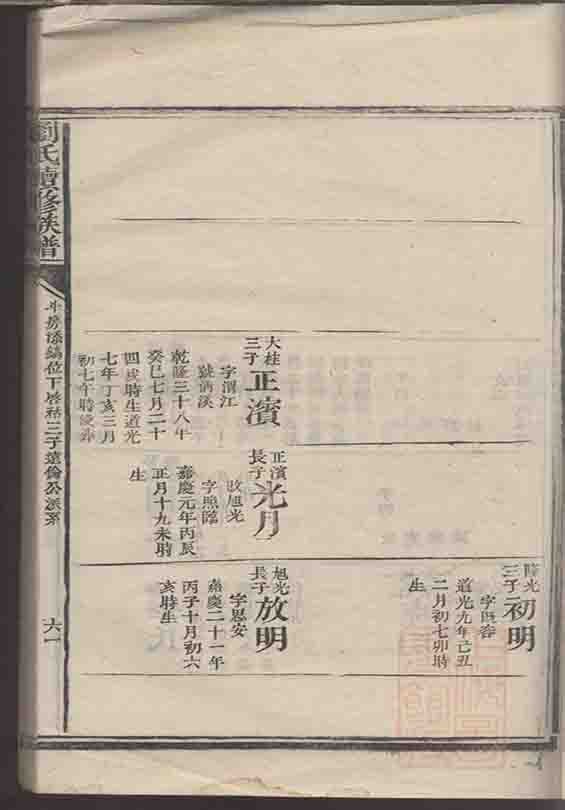 劉氏續修族譜
三子遠倫公派系
六一
大桂
三子
正濱
字渭江
乾隆三十八年
癸巳七月二十
四戌時生道光
七年丁亥三月
正濱
長子
光月
改旭光
字照臨
嘉慶元年丙辰
正月十九未時
生
三子
初明
字既春
道光九年己丑
二月初七卯時
生
旭光
長子
放明
字思安
嘉慶二十一年
丙子十月初六
亥時生